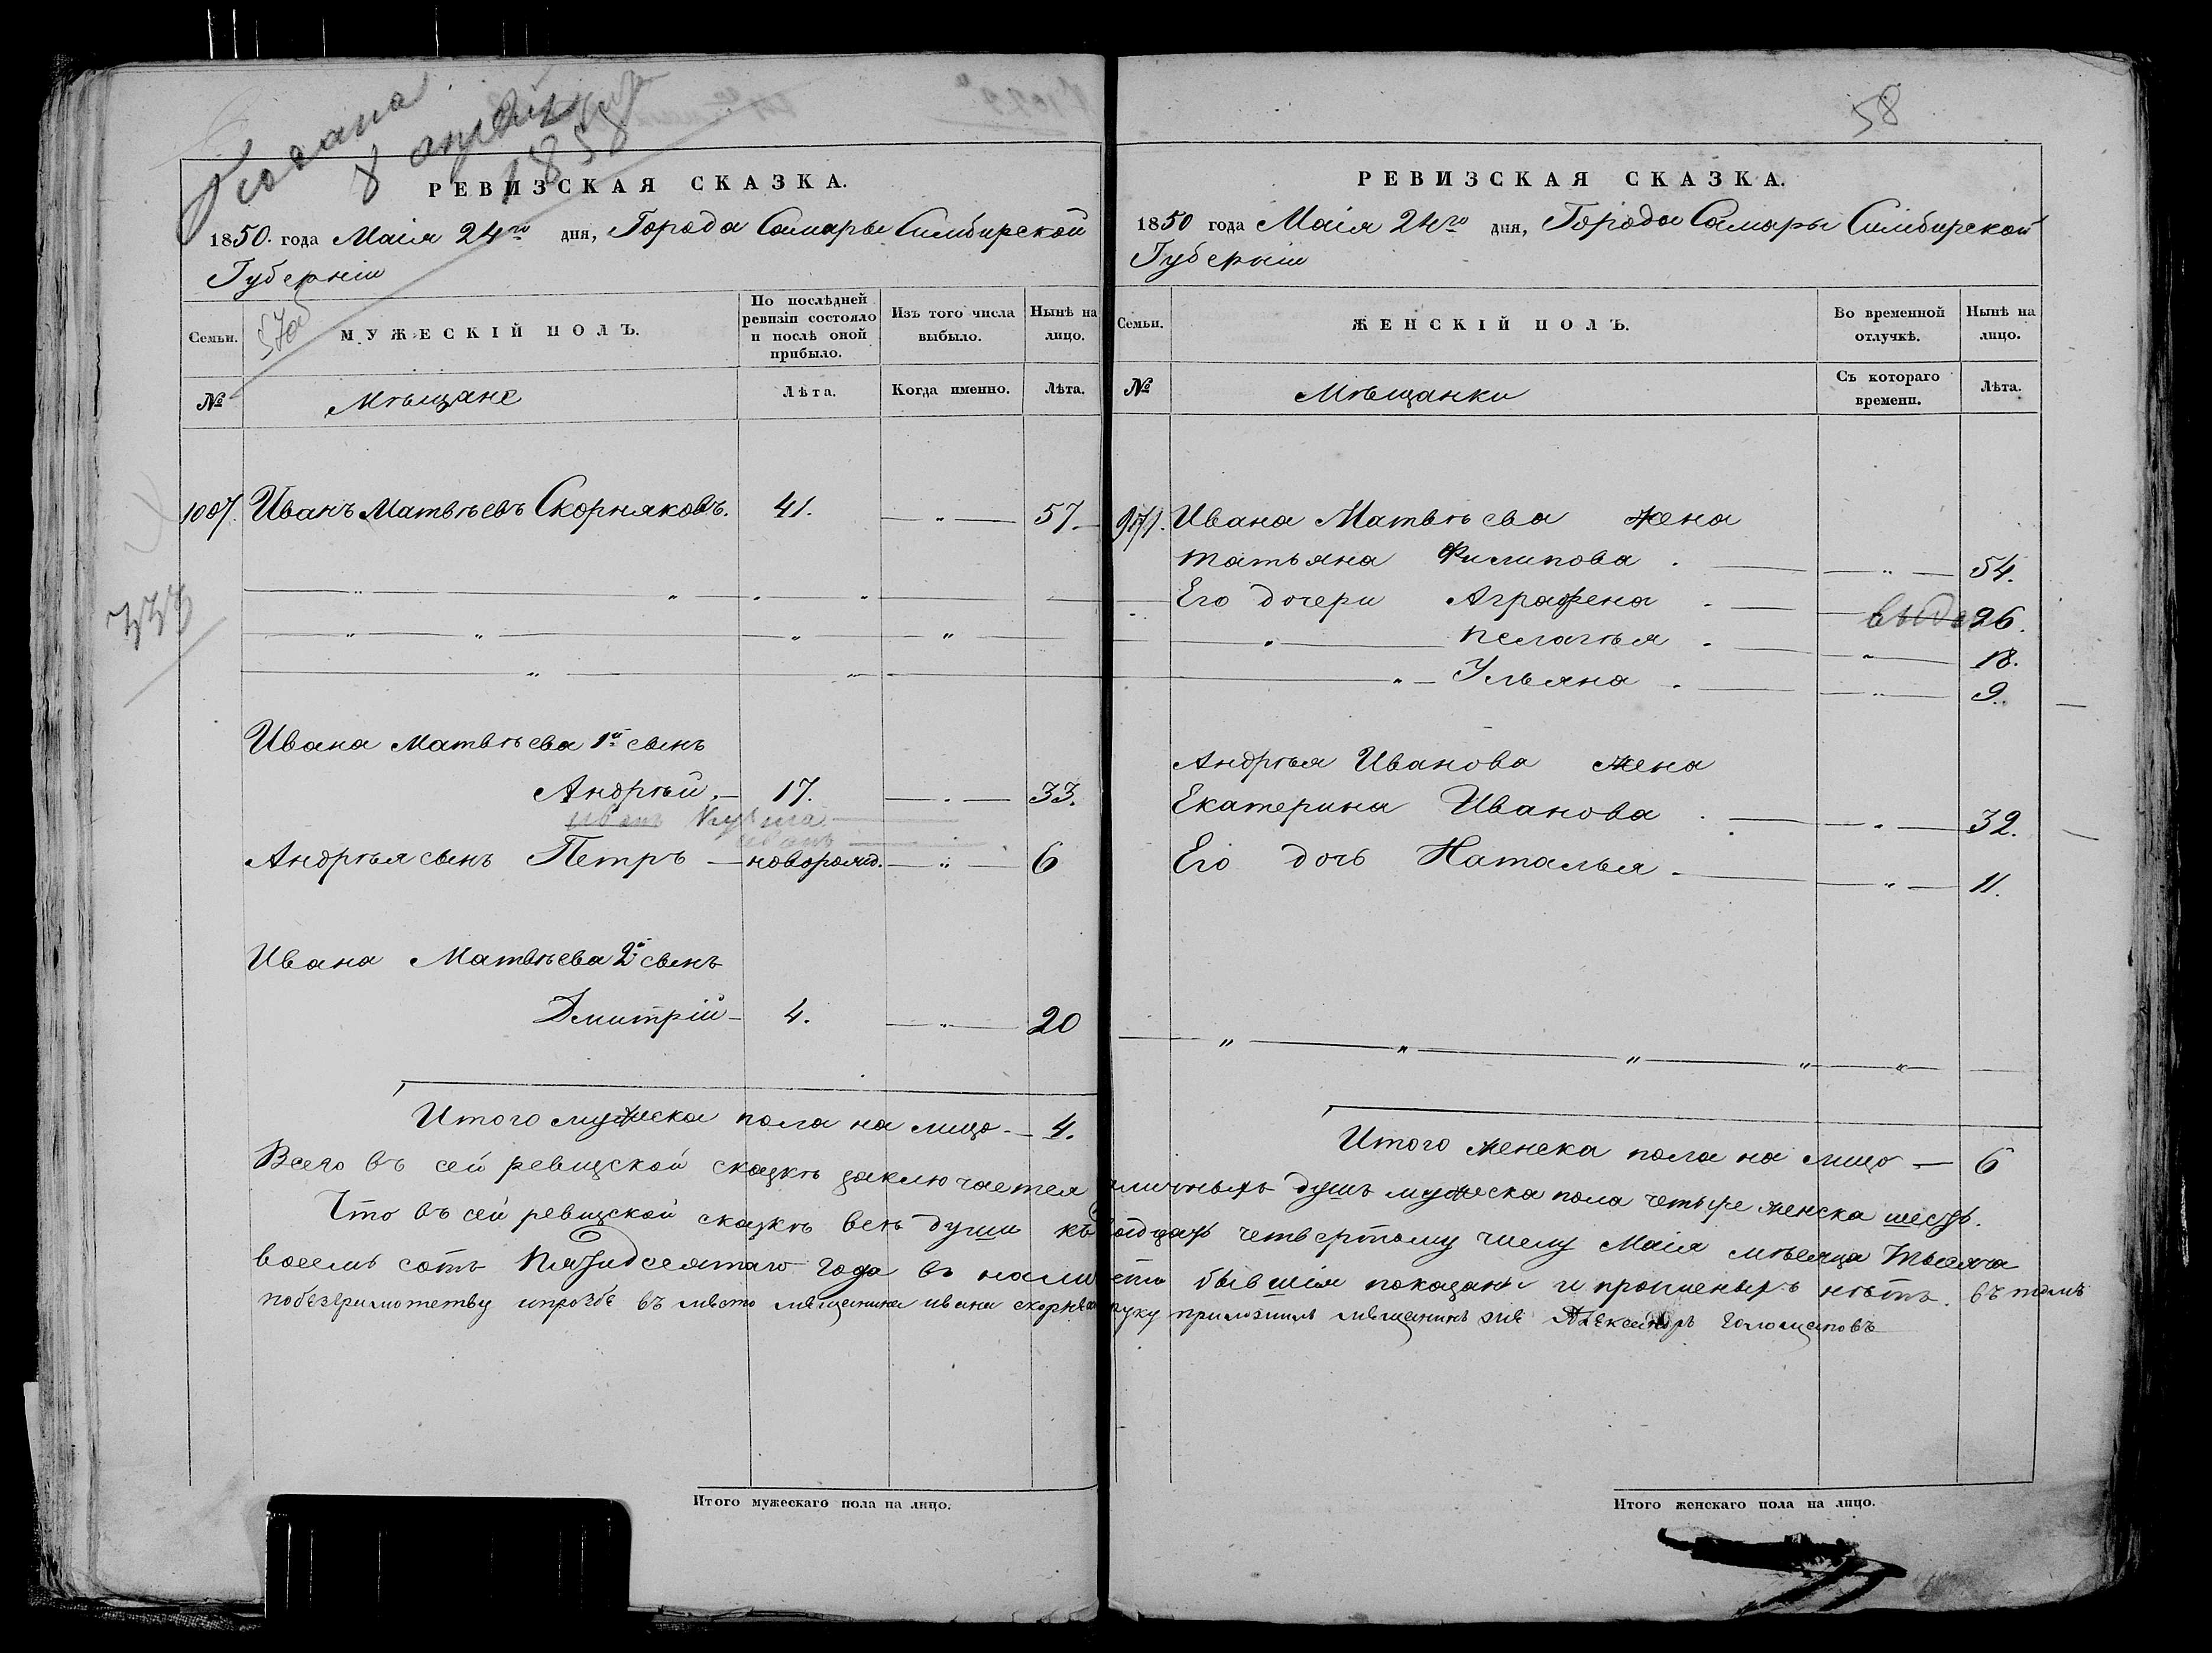 58
Подана
8 апреля
1858
РЕВИЗСКАЯ СКАЗКА.
1850. года Маія 24го дня, Города Самары Симбирской
Губерніи
Семьи.
МУЖЕСКІЙ ПОЛЪ.
По послѣдней ревизіи состояло и послѣ оной прибыло.
Изъ того числа выбыло.
Нынѣ на лицо.
№
Мѣщане
Лѣта.
Когда именно.
Лѣта.
1007. Иванъ Матвѣевъ Скорняковъ. 41. — " — 57.
Ивана Матвѣева 1й сынъ
Андрѣй. — 17. — " — 33.
иванъ Кузма
иванъ
Андрѣя сынъ Петръ — новорожд. — " — 6
Ивана Матвѣева 2й сынъ
Дмитрій — 4. — " — 20
Итого мужеска пола на лицо — 4.
РЕВИЗСКАЯ СКАЗКА.
1850 года Маія 24го дня, Города Самары Симбирской
Губерніи
Семьи.
ЖЕНСКІЙ ПОЛЪ.
Во временной отлучкѣ.
Нынѣ на лицо.
№
Мѣщанки
Съ котораго времени.
Лѣта.
Ивана Матвѣева жена
Татьяна Филипова . — " — 54.
Его дочери Аграфена . — 26.
" — Пелагѣя . — " — 18.
" — Ульяна . — " — 9.
Андрѣя Иванова жена
Екатерина Иванова . — " — 32.
Его дочь Наталья . — " — 11.
Итого женска пола на лицо — 6
Всего въ сей ревизской сказкѣ заключается наличныхъ душъ мужеска пола четыре женска шесть.
Что въ сей ревизской сказкѣ всѣ души къ двадцать четвертому числу Маія мѣсяца тысяча
восемь сотъ пятидесятаго года въ наличности бывшія показаны и прописныхъ нѣтъ. въ томъ
побезграмотству ипрозбе въ место мещанина ивана скорнякова руку приложилъ мещанинъ Александръ
Итого мужескаго пола на лицо.
Итого женскаго пола на лицо.